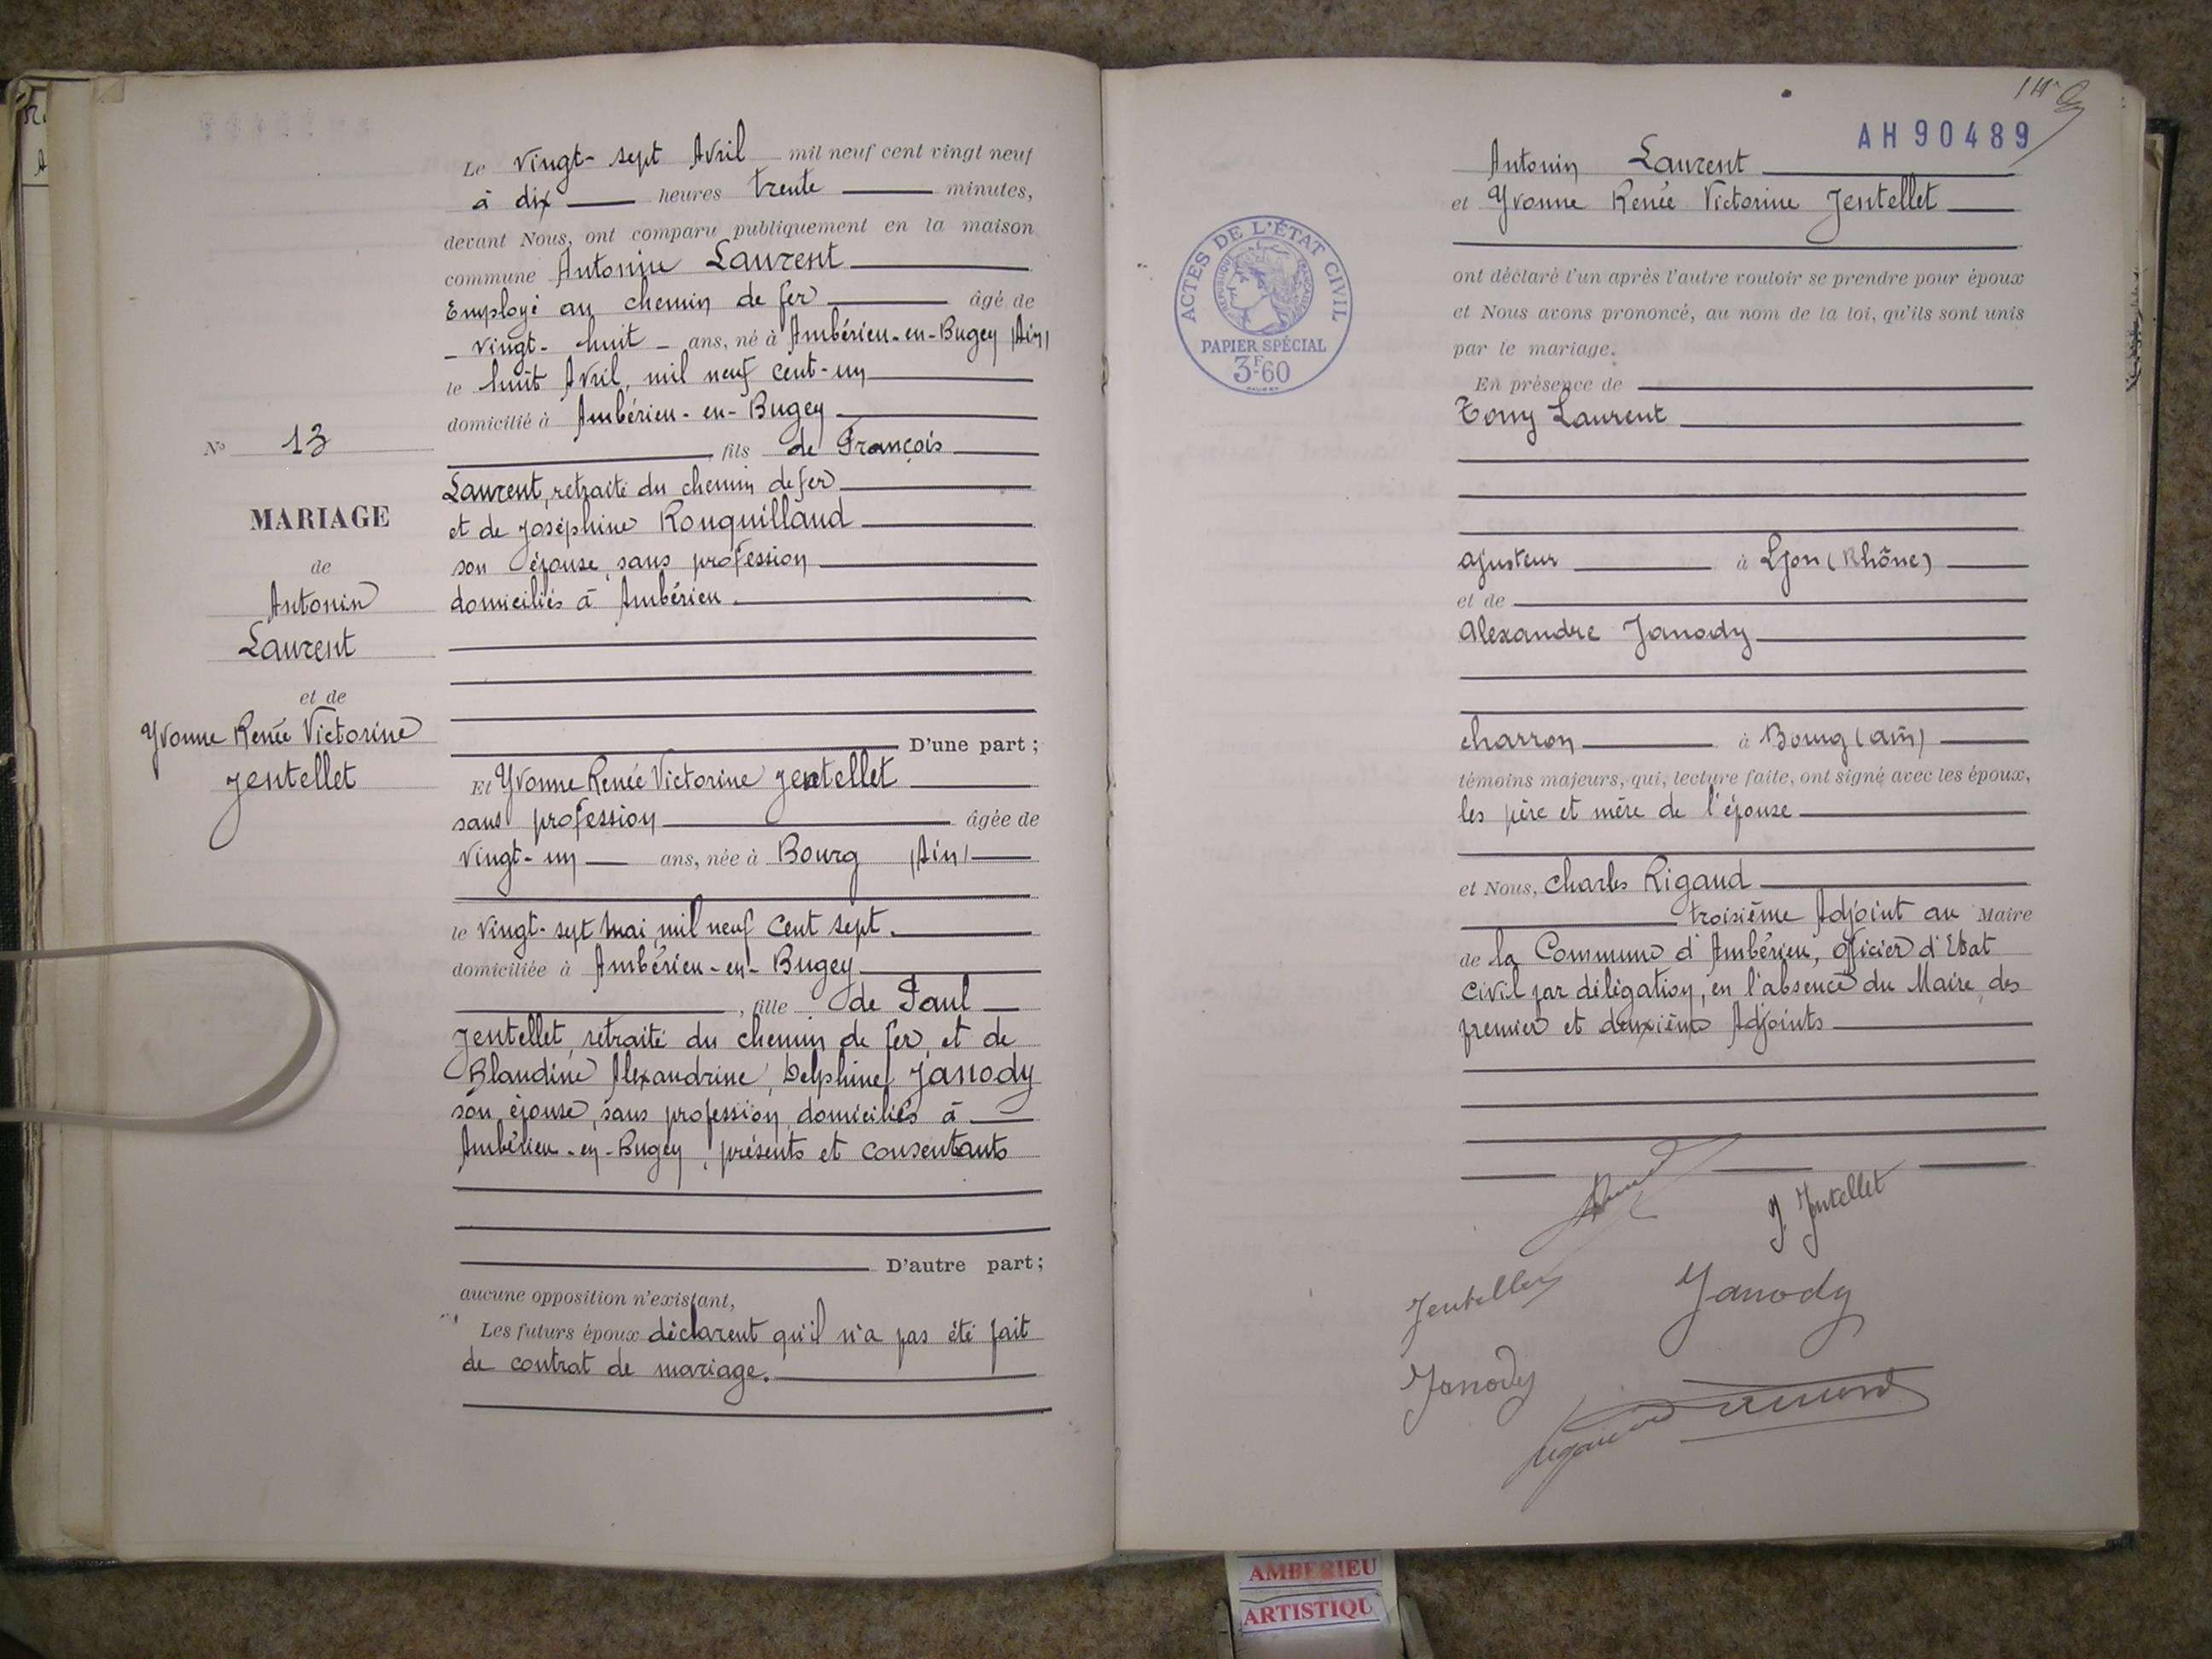 N° 13
MARIAGE
de
Antonin
Laurent
et de
Yvonne Renée Victorine
Jentellet
Le vingt-sept Avril mil neuf cent vingt neuf
à dix heures trente minutes,
devant Nous, ont comparu publiquement en la maison
commune Antonin Laurent
Employé au chemin de fer âgé de
vingt-huit ans, né à Ambérieu-en-Bugey (Ain)
le huit Avril, mil neuf cent-un
domicilié à Ambérieu-en-Bugey
, fils de François
Laurent, retraité du chemin de fer
et de Joséphine Ronquillaud
son épouse, sans profession
domiciliés à Ambérieu.
D'une part ;
Et Yvonne Renée Victorine Jentellet
sans profession âgée de
vingt-un ans, née à Bourg (Ain)
le vingt-sept mai, mil neuf cent sept.
domiciliée à Ambérieu-en-Bugey
, fille de Paul
Jentellet, retraité du chemin de fer, et de
Blandine Alexandrine, Delphine Janody
son épouse, sans profession, domiciliés à
Ambérieu-en-Bugey, présents et consentants
D'autre part ;
aucune opposition n'existant,
Les futurs époux déclarent qu'il n'a pas été fait
de contrat de mariage.
AH90489
Antonin Laurent
et Yvonne Renée Victorine Jentellet
ACTES DE L'ÉTAT CIVIL
RÉPUBLIQUE FRANÇAISE
PAPIER SPÉCIAL
3F60
ont déclaré l'un après l'autre vouloir se prendre pour époux
et Nous avons prononcé, au nom de la loi, qu'ils sont unis
par le mariage.
En présence de
Tony Laurent
ajusteur à Lyon (Rhône)
et de
Alexandre Janody
charron à Bourg (ain)
témoins majeurs, qui, lecture faite, ont signé avec les époux,
les père et mère de l'épouse
et Nous, Charles Rigaud
troisième Adjoint au Maire
de la Commune d'Ambérieu, officier d'Etat
civil par délégation, en l'absence du Maire, des
premier et deuxième Adjoints
Y. Jentellet
Jentellet
Janody
Janody
AMBERIEU
ARTISTIQU